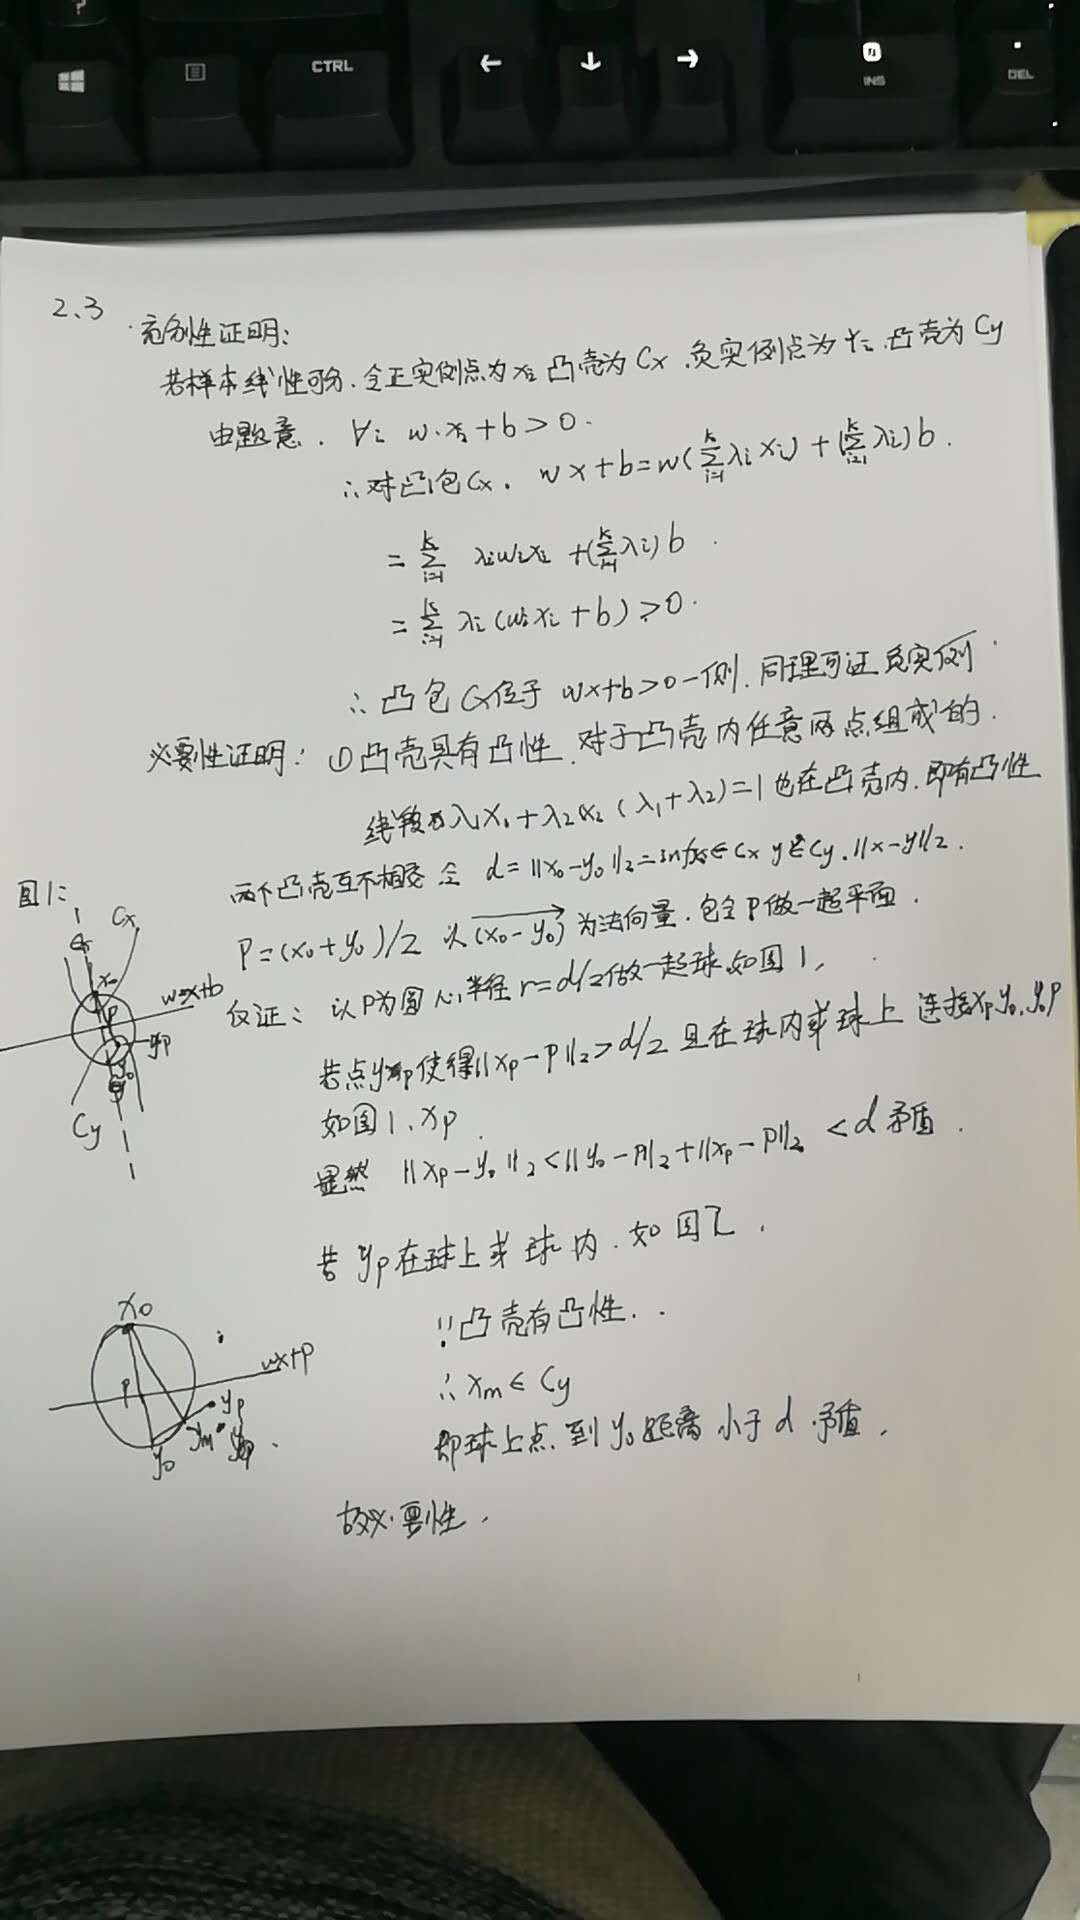 CTRL
INS
DEL
2、3
充分性证明：
若样本线性可分，令正实例点为xi 凸壳为Cx，负实例点为Yi，凸壳为Cy
由题意，∀i w·xi+b>0.
∴对凸包Cx，wx+b=w(∑λixi)+(∑λi)b.
=∑λiwixi+(∑λi)b.
=∑λi(wixi+b)>0.
∴凸包Cx位于 wx+b>0一侧，同理可证负实例
必要性证明：①凸壳具有凸性，对于凸壳内任意两点组成的.
线段 λ1x1+λ2x2(λ1+λ2)=1也在凸壳内，即有凸性
两个凸壳互不相交 令 d=||x0-y0||2=inf x∈Cx y∈Cy，||x-y||2.
P=(x0+y0)/2 以(x0-y0)为法向量，包含P做一超平面.
图1：
Cx
x0
P
wx+b
yp
y0
Cy
仅证：以P为圆心，半径r=d/2做一超球，如图1，
若点 xp使得||xp-p||2>d/2且在球内或球上 连接xpy0，y0P
如图1、xp.
显然 ||xp-y0||2<||y0-p||2+||xp-p||2<d矛盾.
若yp在球上或球内，如图2.
∵凸壳有凸性..
∴xm∈Cy
即球上点到y0距离小于d，矛盾.
x0
P
wx+p
yp
ym
y0
故必要性.